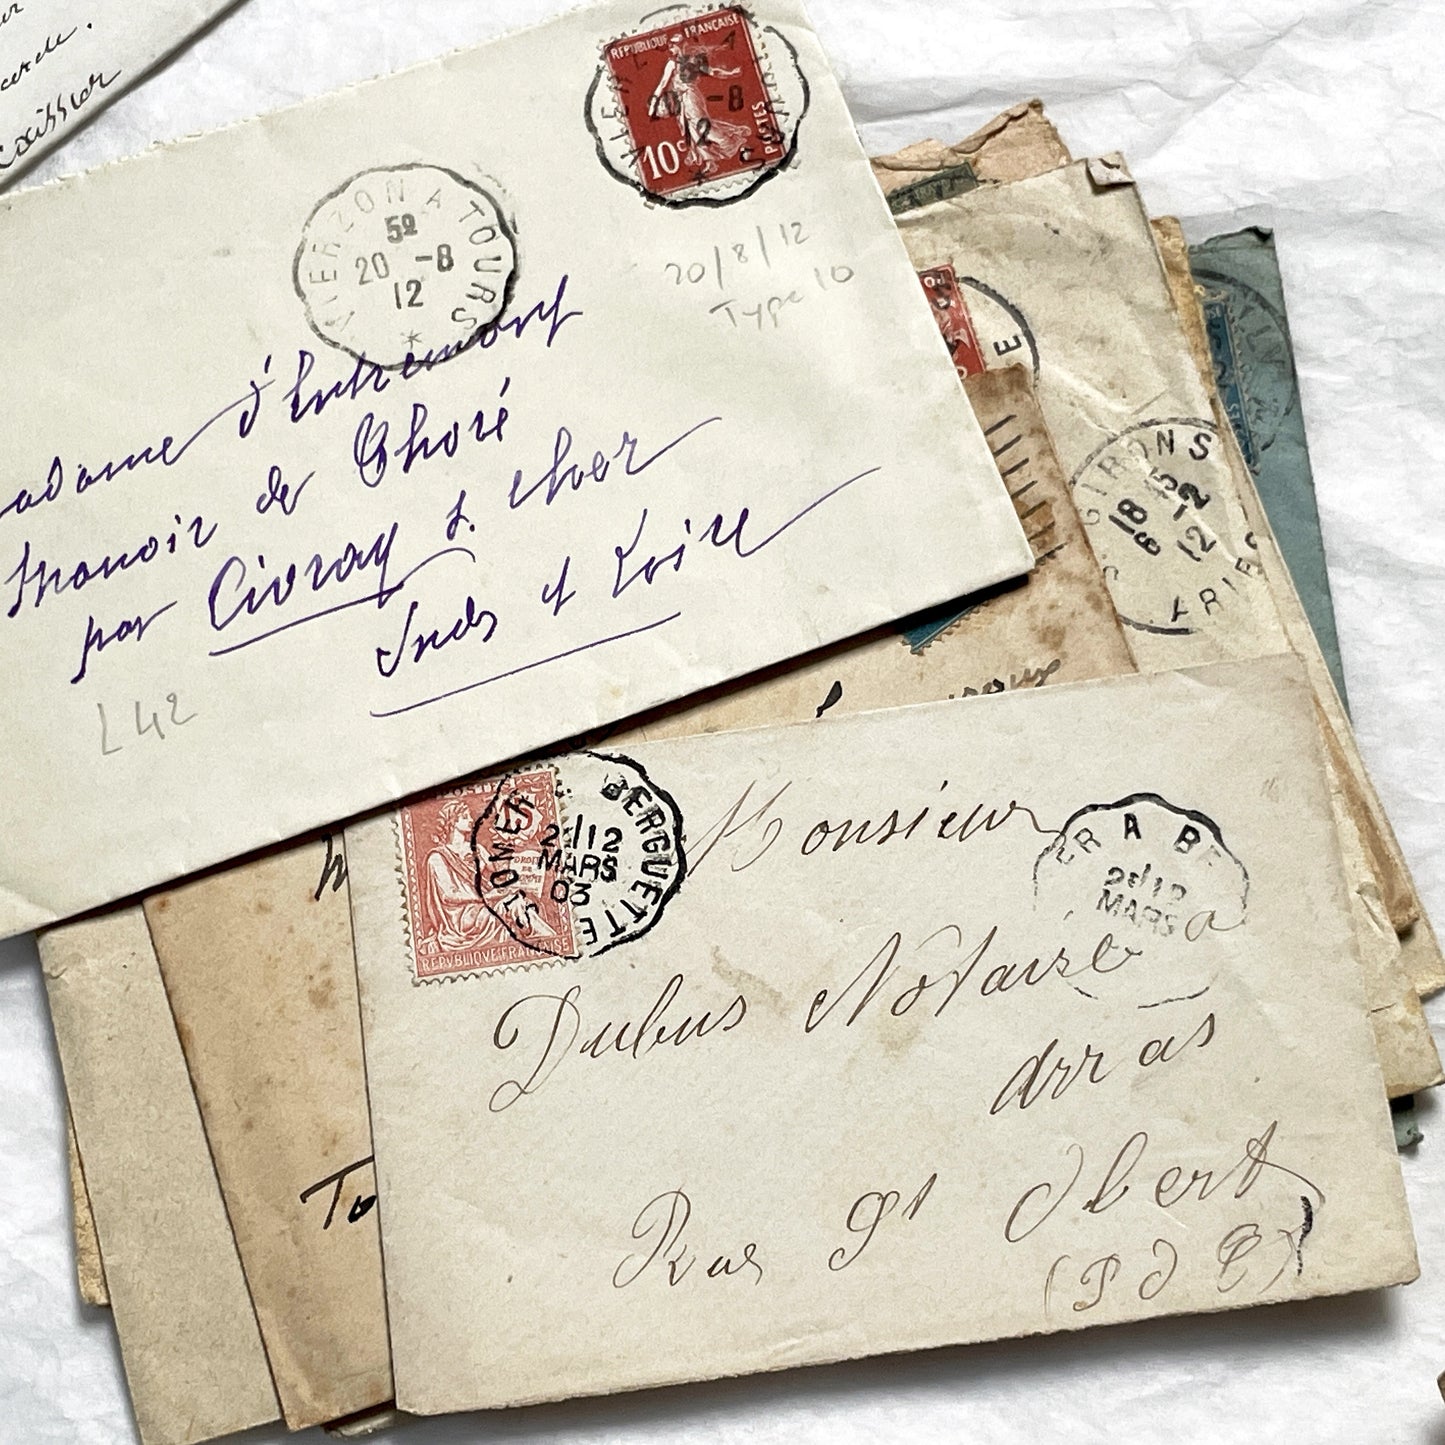 RÉPUBLIQUE FRANÇAISE
10c
POSTES
20 -8
12
VIERZON A TOURS
5º
20 -8
12
20/8/12
Type 10
adame d'Entremont
Manoir de Thoré
par Civray s. Cher
Indre et Loire
L42
E
GIRONS
18 45
6 -2
12
ARIE
POSTES
REPVBLIQVE FRANÇAISE
ST OMER A BERGUETTE
2E/12
MARS
03
ER A BE
2E/12
MARS
Monsieur
Dubus Notaire a
Arras
Rue St Obert
(P d C)
To